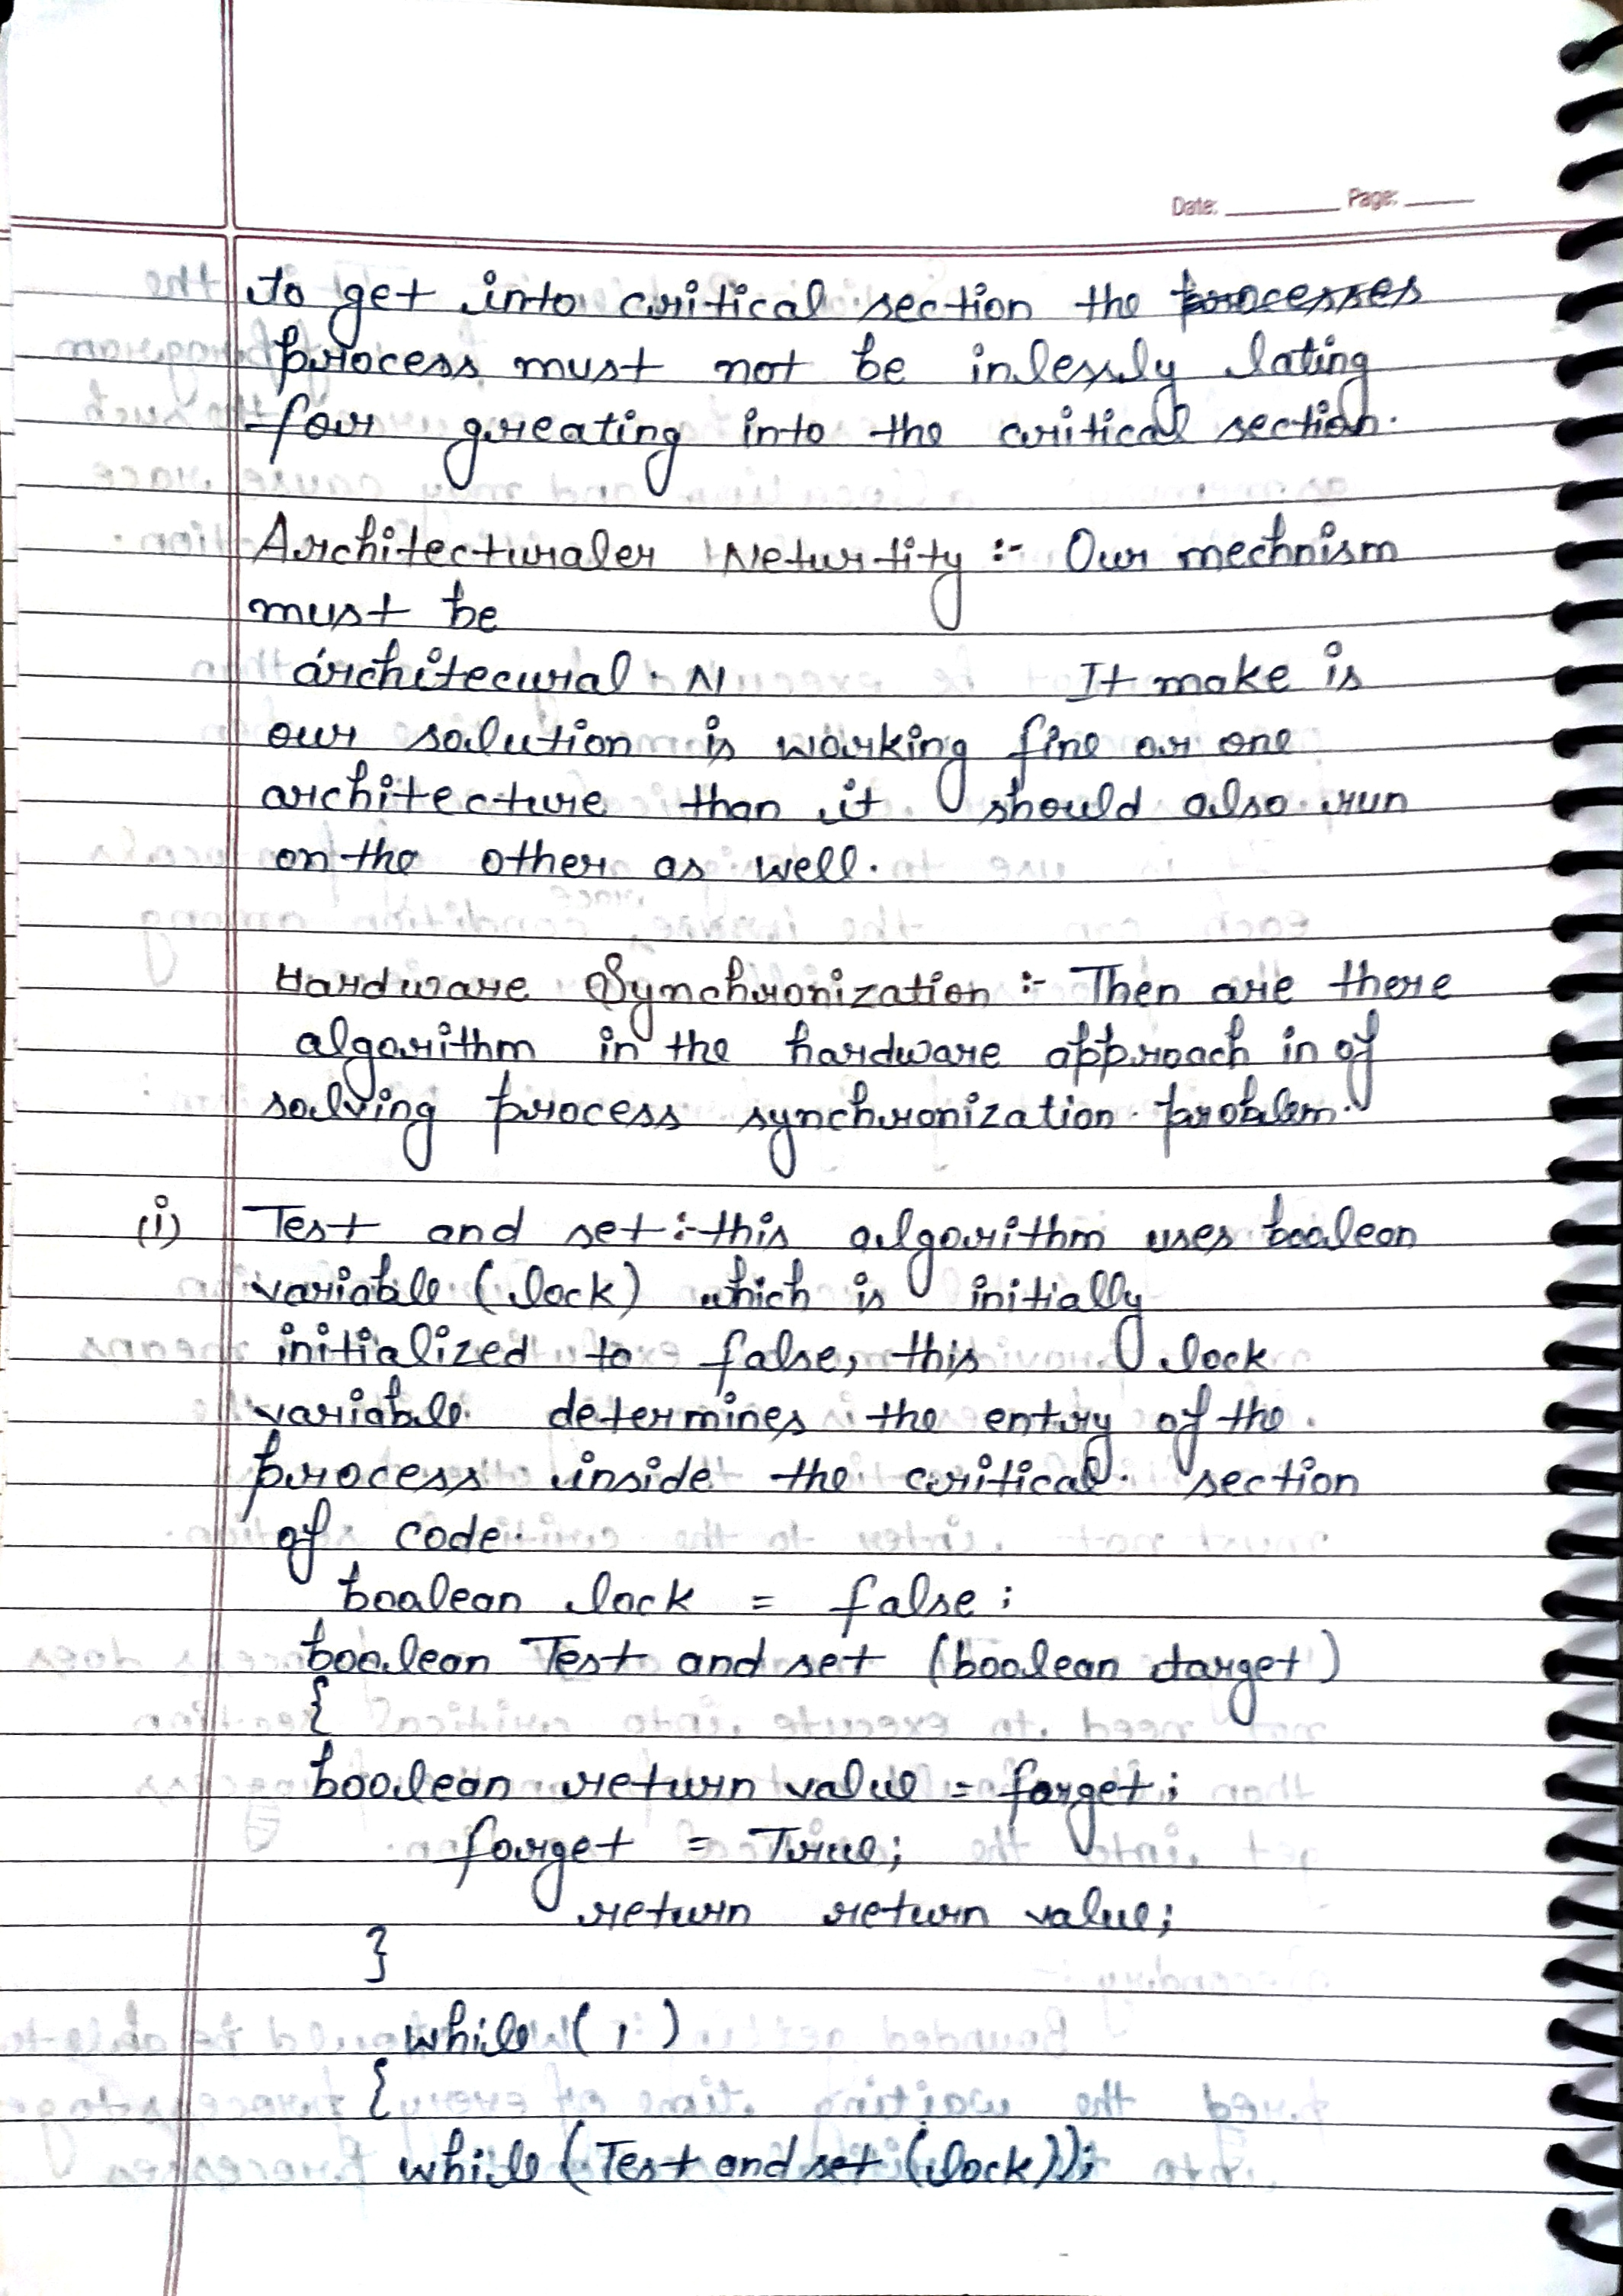 Date: Page:
to get into critical section the processes
process must not be inlessly lating
for greating into the critical section.
Architecturaler Neturtity :- Our mechnism
must be
architecural . N It make is
our solution is working fine or one
architecture than it should also run
on the other as well.
Hardware Synchronization :- Then are there
algorithm in the hardware approach in of
solving process synchronization problem.
(i) Test and set :- this algorithm uses boolean
variable (lock) which is initially
initialized to false, this lock
variable determines the entry of the
process inside the critical section
of code.
boolean lock = false ;
boolean Test and set (boolean target)
{
boolean return value = farget ;
farget = True;
return return value;
}
while ( 1 )
{
while (Test and set (lock));